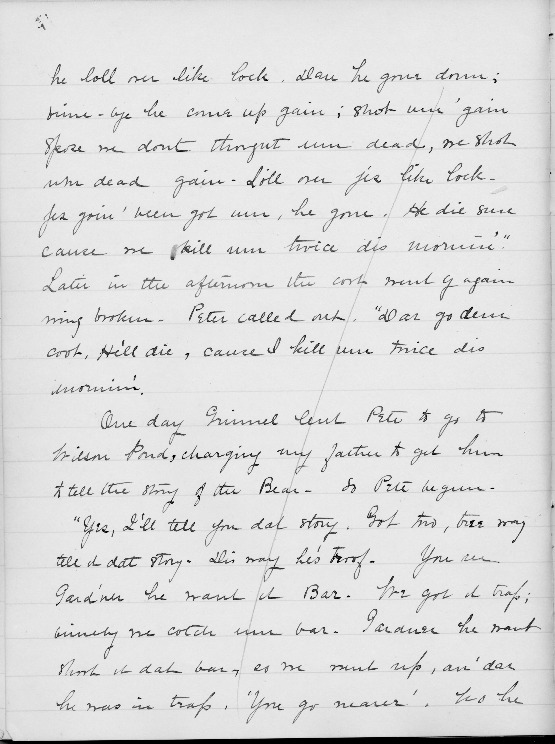 he loll over like lock. Dan he gone down;
bime-bye he come up gain; shot um' gain
Spose we dont thought um dead, we shot
um dead gain - Loll over jes like lock -
Jes goin' been got um, he gone. He die sure
cause we kill um twice dis mornin'."
Later in the afternoon the coot went by again
wing broken - Peter called out. "Dar go dem
coot, He'll die, cause I kill um twice dis
mornin'.
One day Grinnel lent Pete to go to
Wilson Pond, charging my father to get him
to tell the story of the Bear - So Pete begun -
"Yes, I'll tell you dat story. Got two, tree way
tell it dat story - Dis way he's troof - You see
Gard'ner he want it Bar - We got it trap;
bimeby we cotch um bar - Gardner he want
shoot it dat bar, so we went up, an' dar
he was in trap. 'You go nearer'. No he